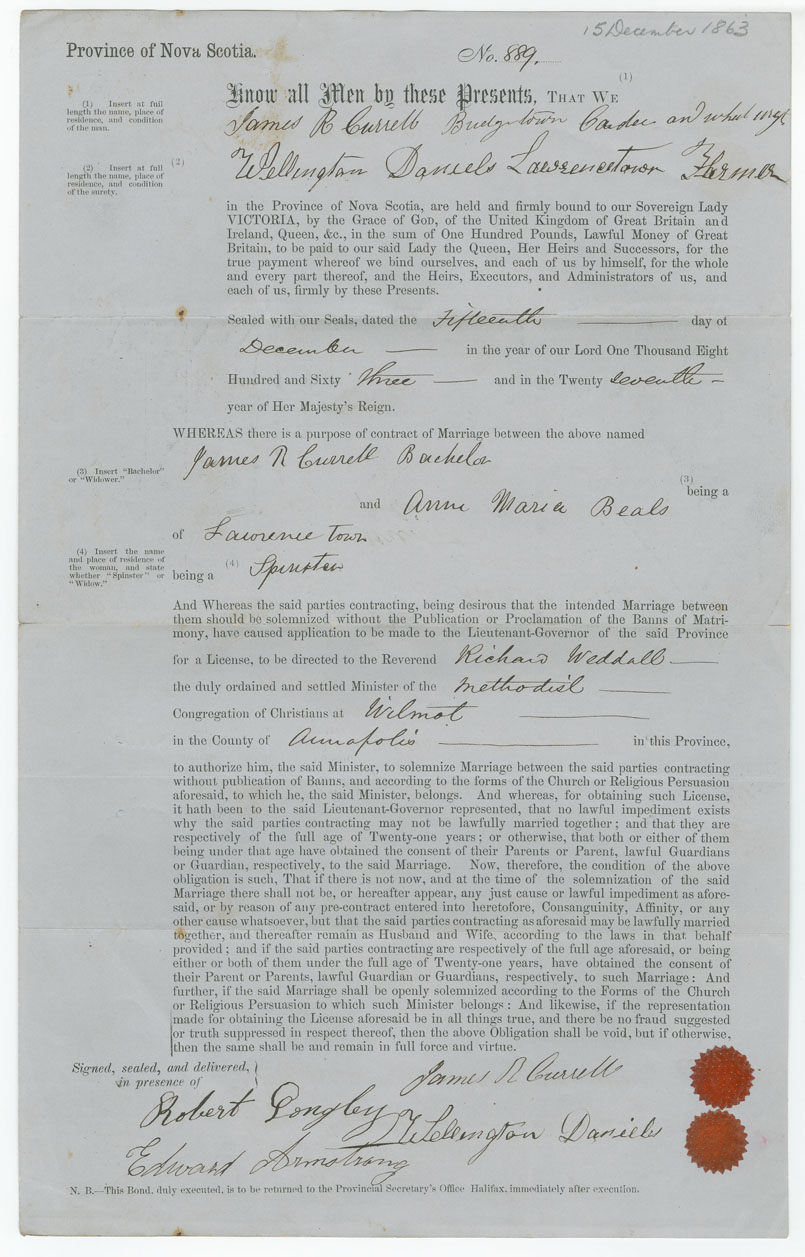 15 December 1863
Province of Nova Scotia.
No. 889.
(1)
Know all Men by these Presents, THAT WE
(1) Insert at full
length the name, place of
residence, and condition
of the man.
James R Currell Bridgetown and wheel
(2) Insert at full
length the name, place of
residence, and condition
of the surety.
(2)
Wellington Daniels Lawrencetown Farmer
in the Province of Nova Scotia, are held and firmly bound to our Sovereign Lady
VICTORIA, by the Grace of GOD, of the United Kingdom of Great Britain and
Ireland, Queen, &c., in the sum of One Hundred Pounds, Lawful Money of Great
Britain, to be paid to our said Lady the Queen, Her Heirs and Successors, for the
true payment whereof we bind ourselves, and each of us by himself, for the whole
and every part thereof, and the Heirs, Executors, and Administrators of us, and
each of us, firmly by these Presents.
Sealed with our Seals, dated the Fifteenth day of
December in the year of our Lord One Thousand Eight
Hundred and Sixty three and in the Twenty seventh
year of Her Majesty's Reign.
WHEREAS there is a purpose of contract of Marriage between the above named
James R Currell Bachelor
(3) Insert "Bachelor"
or "Widower."
(3)
being a
and Anne Maria Beals
of Lawrence town
(4) Insert the name
and place of residence of
the woman, and state
whether "Spinster" or
"Widow."
being a (4) Spinster
And Whereas the said parties contracting, being desirous that the intended Marriage between
them should be solemnized without the Publication or Proclamation of the Banns of Matri-
mony, have caused application to be made to the Lieutenant-Governor of the said Province
for a License, to be directed to the Reverend Richard Weddall
the duly ordained and settled Minister of the Methodist
Congregation of Christians at Wilmot
in the County of Annapolis in this Province,
to authorize him, the said Minister, to solemnize Marriage between the said parties contracting
without publication of Banns, and according to the forms of the Church or Religious Persuasion
aforesaid, to which he, the said Minister, belongs. And whereas, for obtaining such License,
it hath been to the said Lieutenant-Governor represented, that no lawful impediment exists
why the said parties contracting may not be lawfully married together; and that they are
respectively of the full age of Twenty-one years; or otherwise, that both or either of them
being under that age have obtained the consent of their Parents or Parent, lawful Guardians
or Guardian, respectively, to the said Marriage. Now, therefore, the condition of the above
obligation is such, That if there is not now, and at the time of the solemnization of the said
Marriage there shall not be, or hereafter appear, any just cause or lawful impediment as afore-
said, or by reason of any pre-contract entered into heretofore, Consanguinity, Affinity, or any
other cause whatsoever, but that the said parties contracting as aforesaid may be lawfully married
together, and thereafter remain as Husband and Wife, according to the laws in that behalf
provided; and if the said parties contracting are respectively of the full age aforesaid, or being
either or both of them under the full age of Twenty-one years, have obtained the consent of
their Parent or Parents, lawful Guardian or Guardians, respectively, to such Marriage: And
further, if the said Marriage shall be openly solemnized according to the Forms of the Church
or Religious Persuasion to which such Minister belongs: And likewise, if the representation
made for obtaining the License aforesaid be in all things true, and there be no fraud suggested
or truth suppressed in respect thereof, then the above Obligation shall be void, but if otherwise,
then the same shall be and remain in full force and virtue.
Signed, sealed, and delivered,
in presence of
James R Currell
Robert Longley
Wellington Daniels
Edward Armstrong
N. B.—This Bond, duly executed, is to be returned to the Provincial Secretary's Office Halifax, immediately after execution.